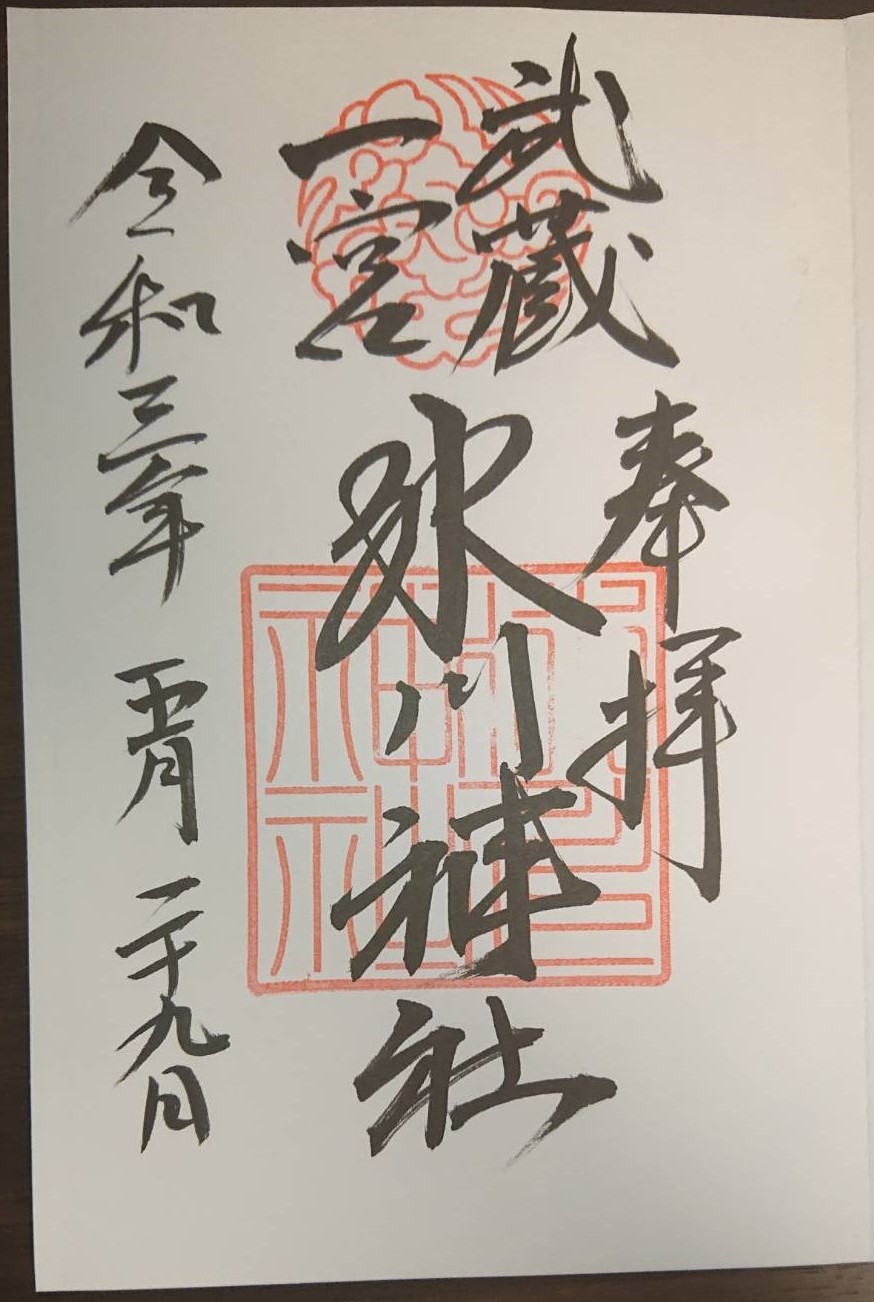 奉拝
武蔵
一宮
氷川神社
令和三年 五月 二十九日